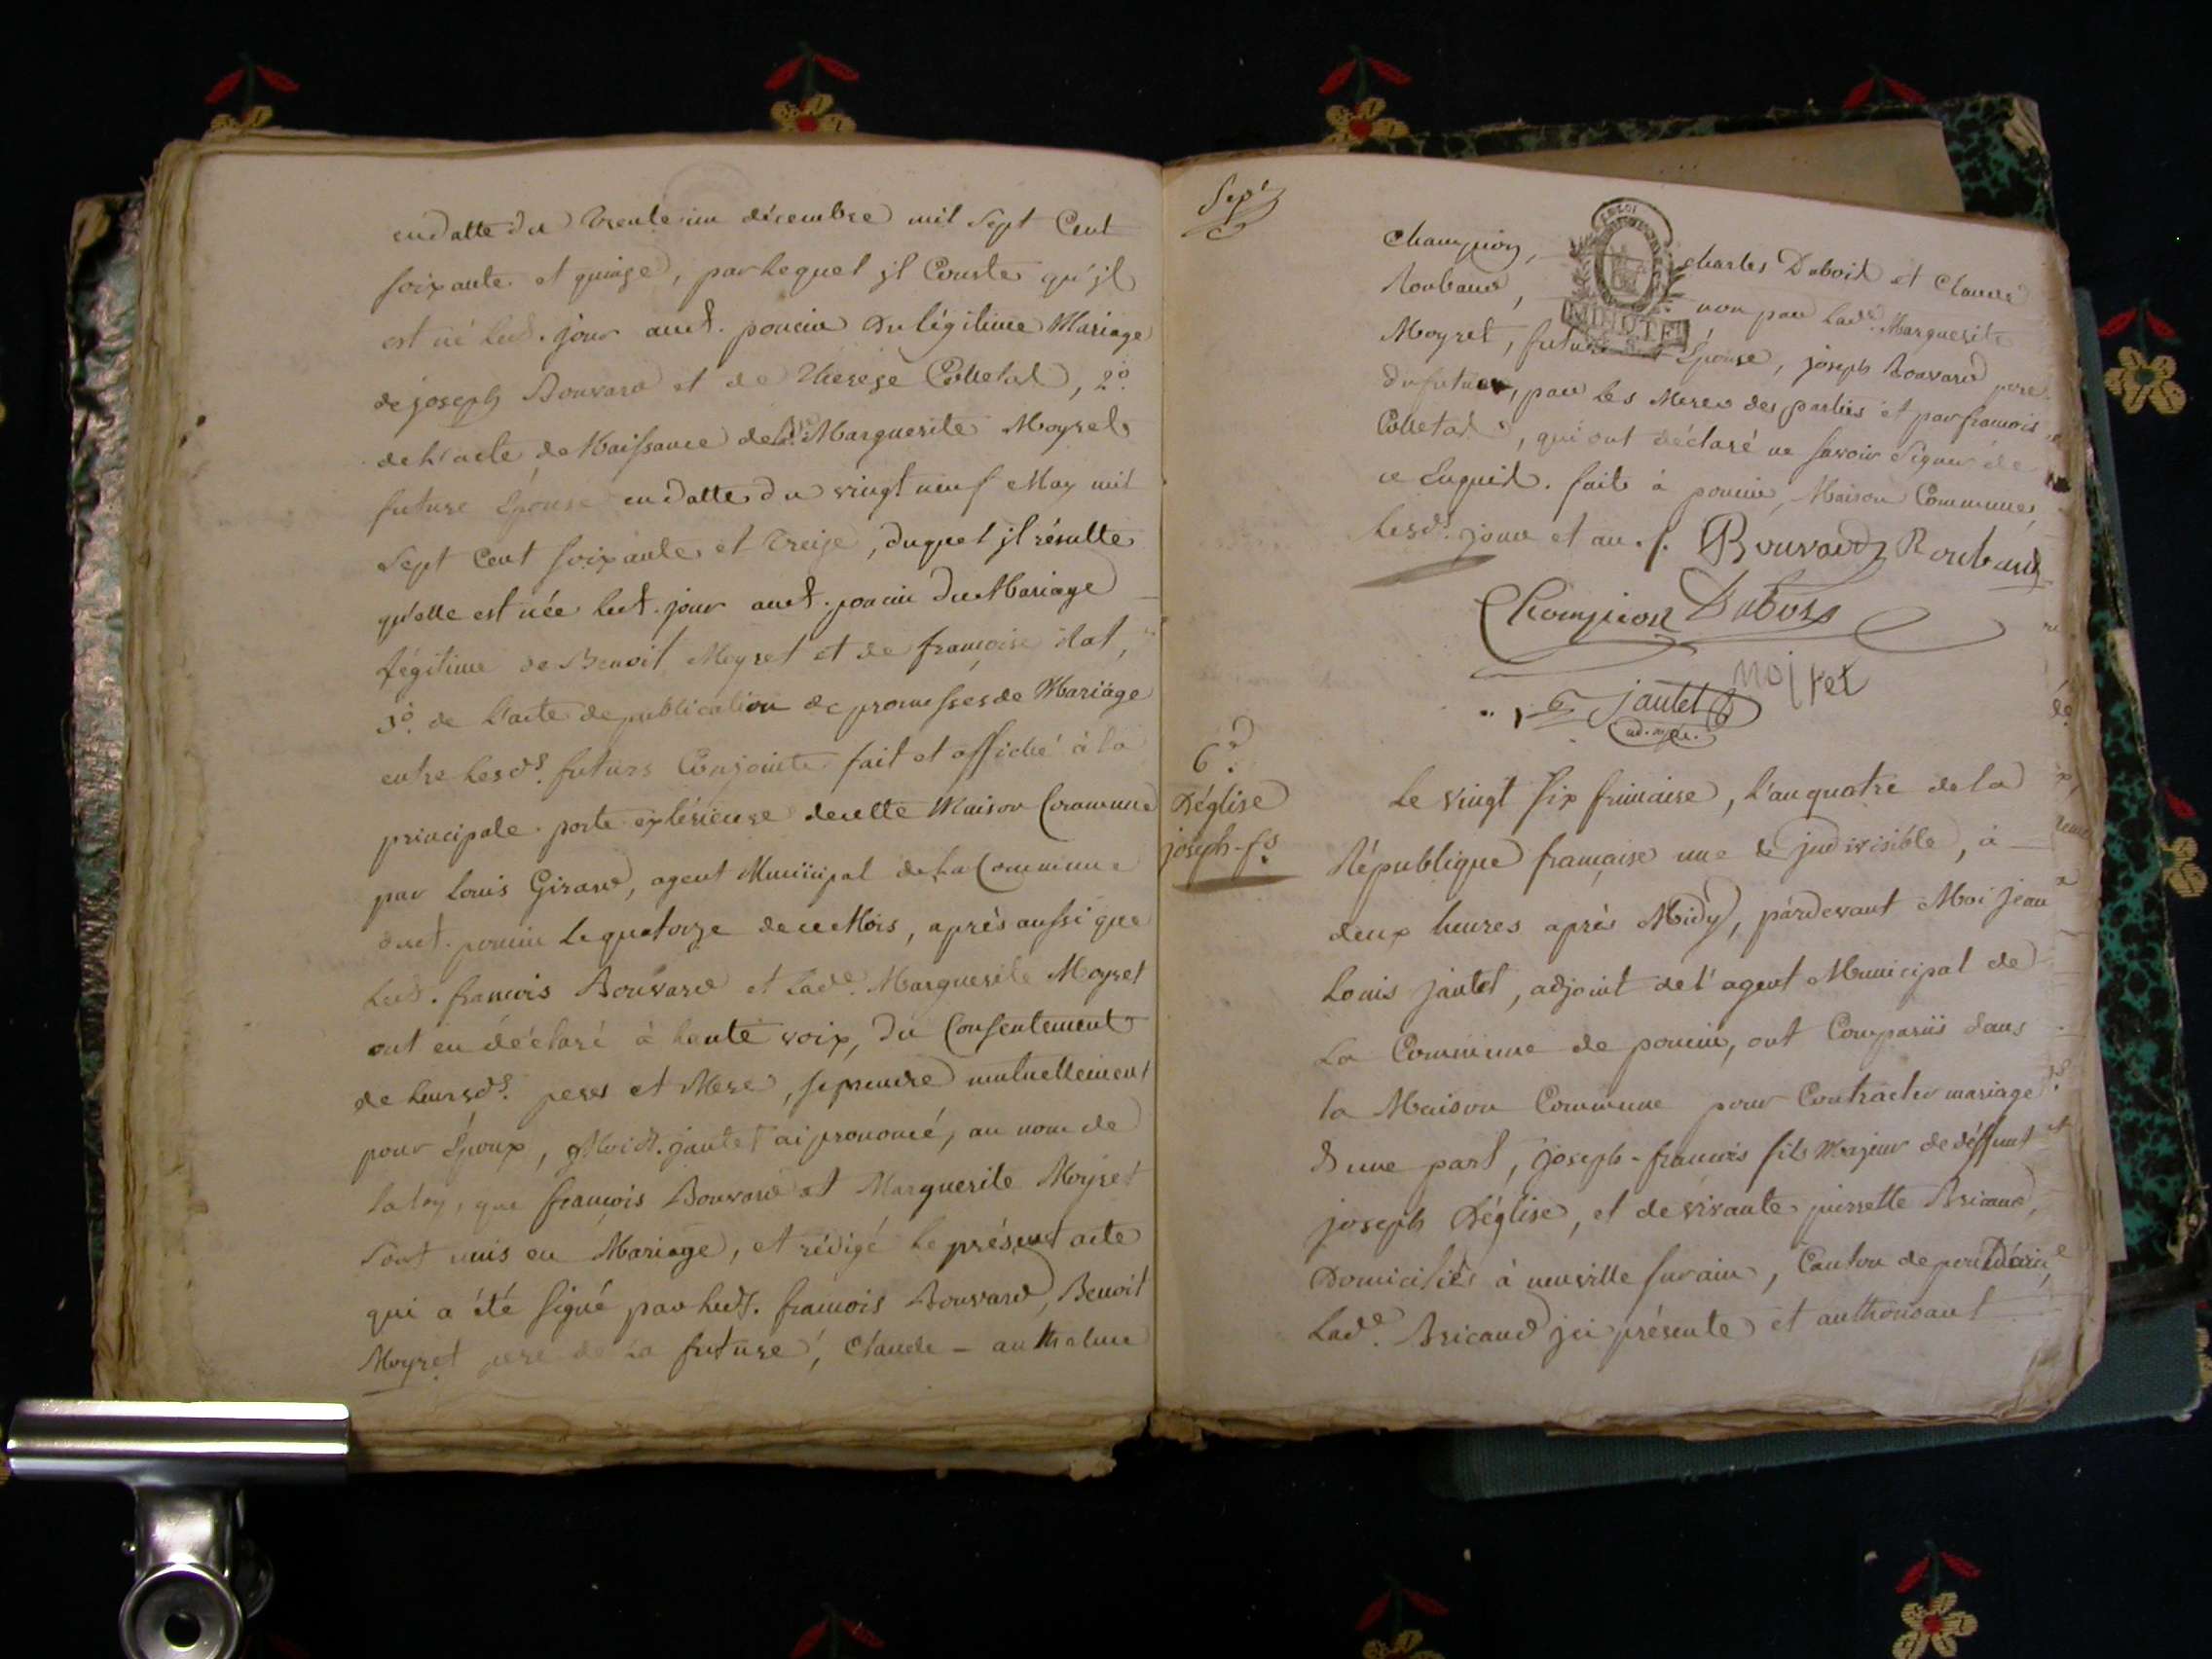 en datte du Trente un décembre mil Sept Cent
soixante et quinze, par lequel jl Conste qu'jl
est né led. jour aud. poncin du légitime Mariage
de joseph Bouvard et de Thereze Colletal, 2°.
de l'acte de Naissance de lad.e Marguerite Moyret
future Épouse en datte du vingt neuf May mil
Sept Cent soixante et Treize, duquel jl résulte
qu'elle est née led. jour aud. poncin du Mariage
légitime de Benoit Moyret et de françoise
3°. de l'acte de publication de promesses de Mariage
entre lesd.s futurs Conjoints fait et affiché à la
principale porte extérieure de cette Maison Commune
par Louis Girard, agent Municipal de la Commune
dud. poncin le quatorze de ce Mois, après aussi que
led. francois Bouvard et lad.e Marguerite Moyret
ont eu déclaré à haute voix, du Consentement
de leursd.s peres et Mere, se prendre mutuellement
pour Époux, Moid. jantet ai prononcé, au nom de
la loy, que françois Bouvard et Marguerite Moyret
Sont unis en Mariage, et rédigé le présent acte
qui a été signé par led. francois Bouvard, Benoit
Moyret pere de la future, Claude - anthelme
Sept
Champion, charles Dubois et Claude
Roubaud, non par lad.e Marguerite
MINUTE
Moyret, future Épouse, joseph Bouvard pere
du futur, par les Meres des parties et par francois
Colletal, qui ont déclaré ne savoir Signer de
ce Enquis. fait à poncin, Maison Commune,
lesd.s jour et an. f. Bouvard Roubaud
Champion Dubois
moiret
jantet
adj.
6.e
Déglise
joseph-f.s
Le vingt six frimaire, l'an quatre de la
République française une & jndivisible, à
deux heures après Midy, pardevant Moi jean
Louis jantet, adjoint de l'agent Municipal de
La Commune de poncin, ont Comparûs dans
la Maison Commune pour Contracter mariage
d'une part, joseph-francois fils Majeur de déffunt
joseph Déglise, et de vivante pierrette Bricaud,
Domiciliés à neuville surain, Canton de pontdain,
Lad.e Bricaud jci présente et authorisant